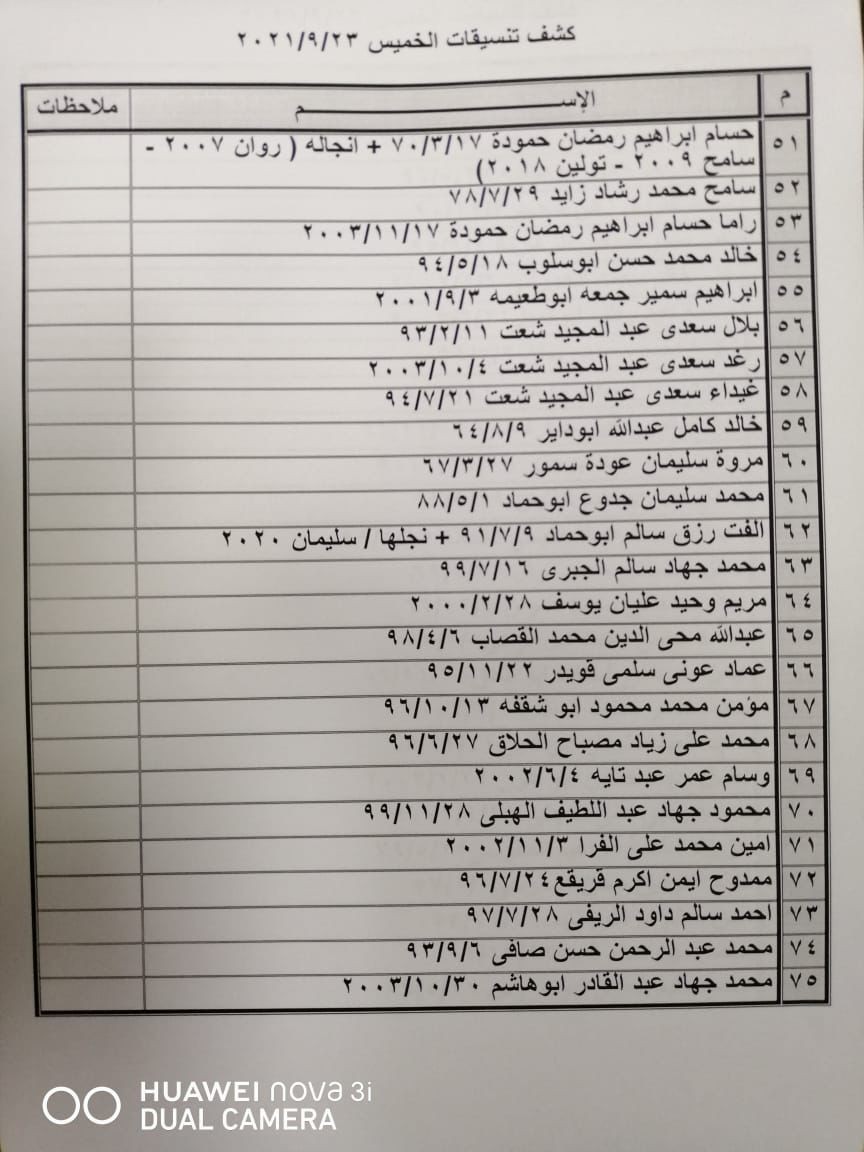 كشف تنسيقات الخميس ٢٠٢١/٩/٢٣
م الإســـــــــم ملاحظات
٥١ حسام ابراهيم رمضان حمودة ٧٠/٣/١٧ + انجاله ( روان ٢٠٠٧ -
سامح ٢٠٠٩ - تولين ٢٠١٨)
٥٢ سامح محمد رشاد زايد ٧٨/٧/٢٩
٥٣ راما حسام ابراهيم رمضان حمودة ٢٠٠٣/١١/١٧
٥٤ خالد محمد حسن ابوسلوب ٩٤/٥/١٨
٥٥ ابراهيم سمير جمعه ابوطعيمه ٢٠٠١/٩/٣
٥٦ بلال سعدى عبد المجيد شعت ٩٣/٢/١١
٥٧ رغد سعدى عبد المجيد شعت ٢٠٠٣/١٠/٤
٥٨ غيداء سعدى عبد المجيد شعت ٩٤/٧/٢١
٥٩ خالد كامل عبدالله ابوداير ٦٤/٨/٩
٦٠ مروة سليمان عودة سمور ٦٧/٣/٢٧
٦١ محمد سليمان جدوع ابوحماد ٨٨/٥/١
٦٢ الفت رزق سالم ابوحماد ٩١/٧/٩ + نجلها / سليمان ٢٠٢٠
٦٣ محمد جهاد سالم الجبرى ٩٩/٧/١٦
٦٤ مريم وحيد عليان يوسف ٢٠٠٠/٢/٢٨
٦٥ عبدالله محى الدين محمد القصاب ٩٨/٤/٦
٦٦ عماد عونى سلمى قويدر ٩٥/١١/٢٢
٦٧ مؤمن محمد محمود ابو شقفه ٩٦/١٠/١٣
٦٨ محمد على زياد مصباح الحلاق ٩٦/٦/٢٧
٦٩ وسام عمر عبد تايه ٢٠٠٢/٦/٤
٧٠ محمود جهاد عبد اللطيف الهبلى ٩٩/١١/٢٨
٧١ امين محمد على الفرا ٢٠٠٢/١١/٣
٧٢ ممدوح ايمن اكرم قريقع ٩٦/٧/٢٤
٧٣ احمد سالم داود الريفى ٩٧/٧/٢٨
٧٤ محمد عبد الرحمن حسن صافى ٩٣/٩/٦
٧٥ محمد جهاد عبد القادر ابوهاشم ٢٠٠٣/١٠/٣٠
HUAWEI nova 3i
DUAL CAMERA